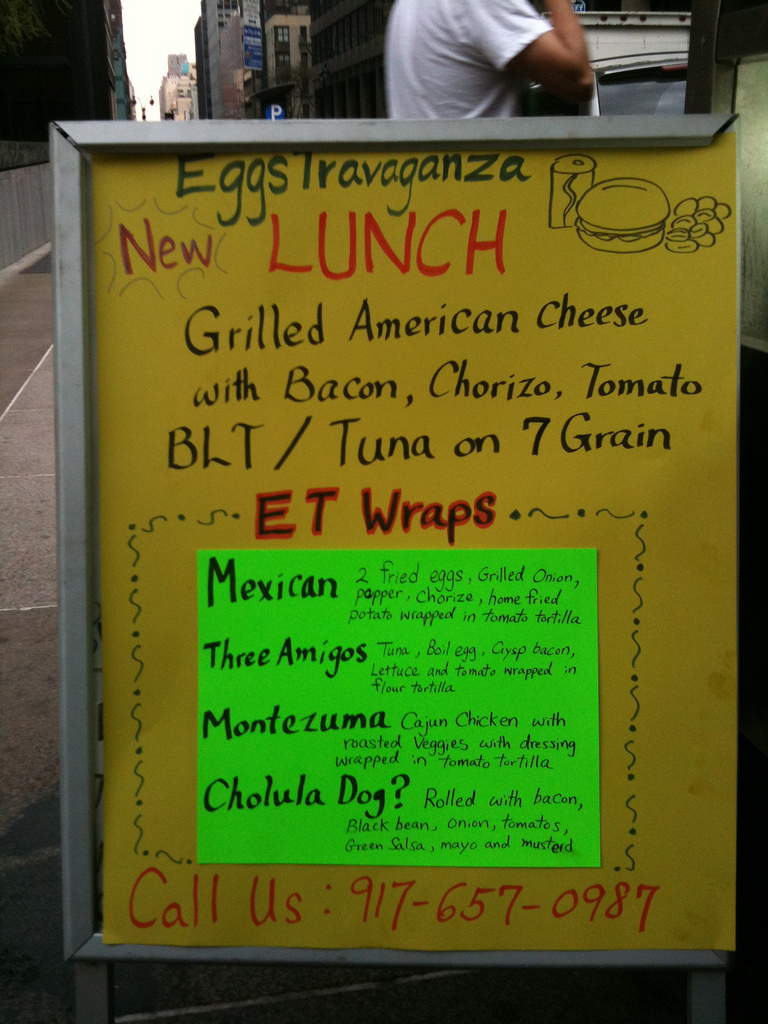 EggsTravaganza
New LUNCH
Grilled American Cheese
with Bacon, Chorizo, Tomato
BLT / Tuna on 7 Grain
ET Wraps
Mexican 2 fried eggs, Grilled Onion,
pepper, Chorize, home fried
potato wrapped in tomato tortilla
Three Amigos Tuna, Boil egg, Crysp bacon,
Lettuce and tomato wrapped in
flour tortilla
Montezuma Cajun Chicken with
roasted Veggies with dressing
wrapped in tomato tortilla
Cholula Dog? Rolled with bacon,
Black bean, onion, tomatos,
Green Salsa, mayo and musterd
Call Us: 917-657-0987
P